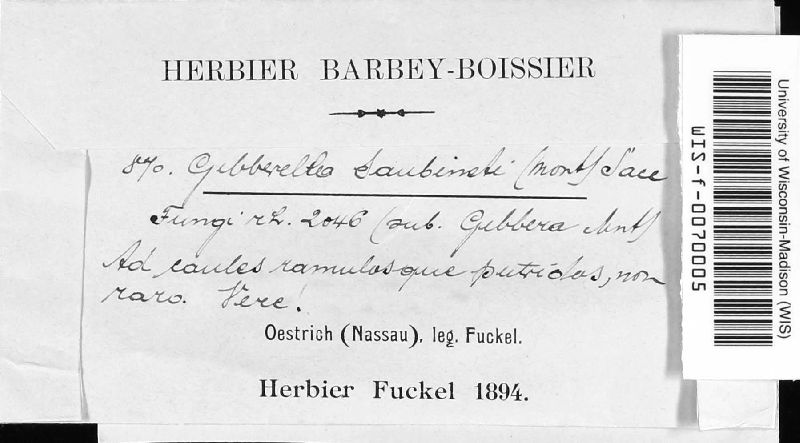 HERBIER BARBEY-BOISSIER
870. Gibberella Saubineti (Mont) Sacc
Fungi rh. 2046 (sub. Gibbera Mnt)
Ad caules ramulosque putridos, non
raro. Vere!
Oestrich (Nassau), leg. Fuckel.
Herbier Fuckel 1894.
WIS-f-0070005
University of Wisconsin-Madison (WIS)